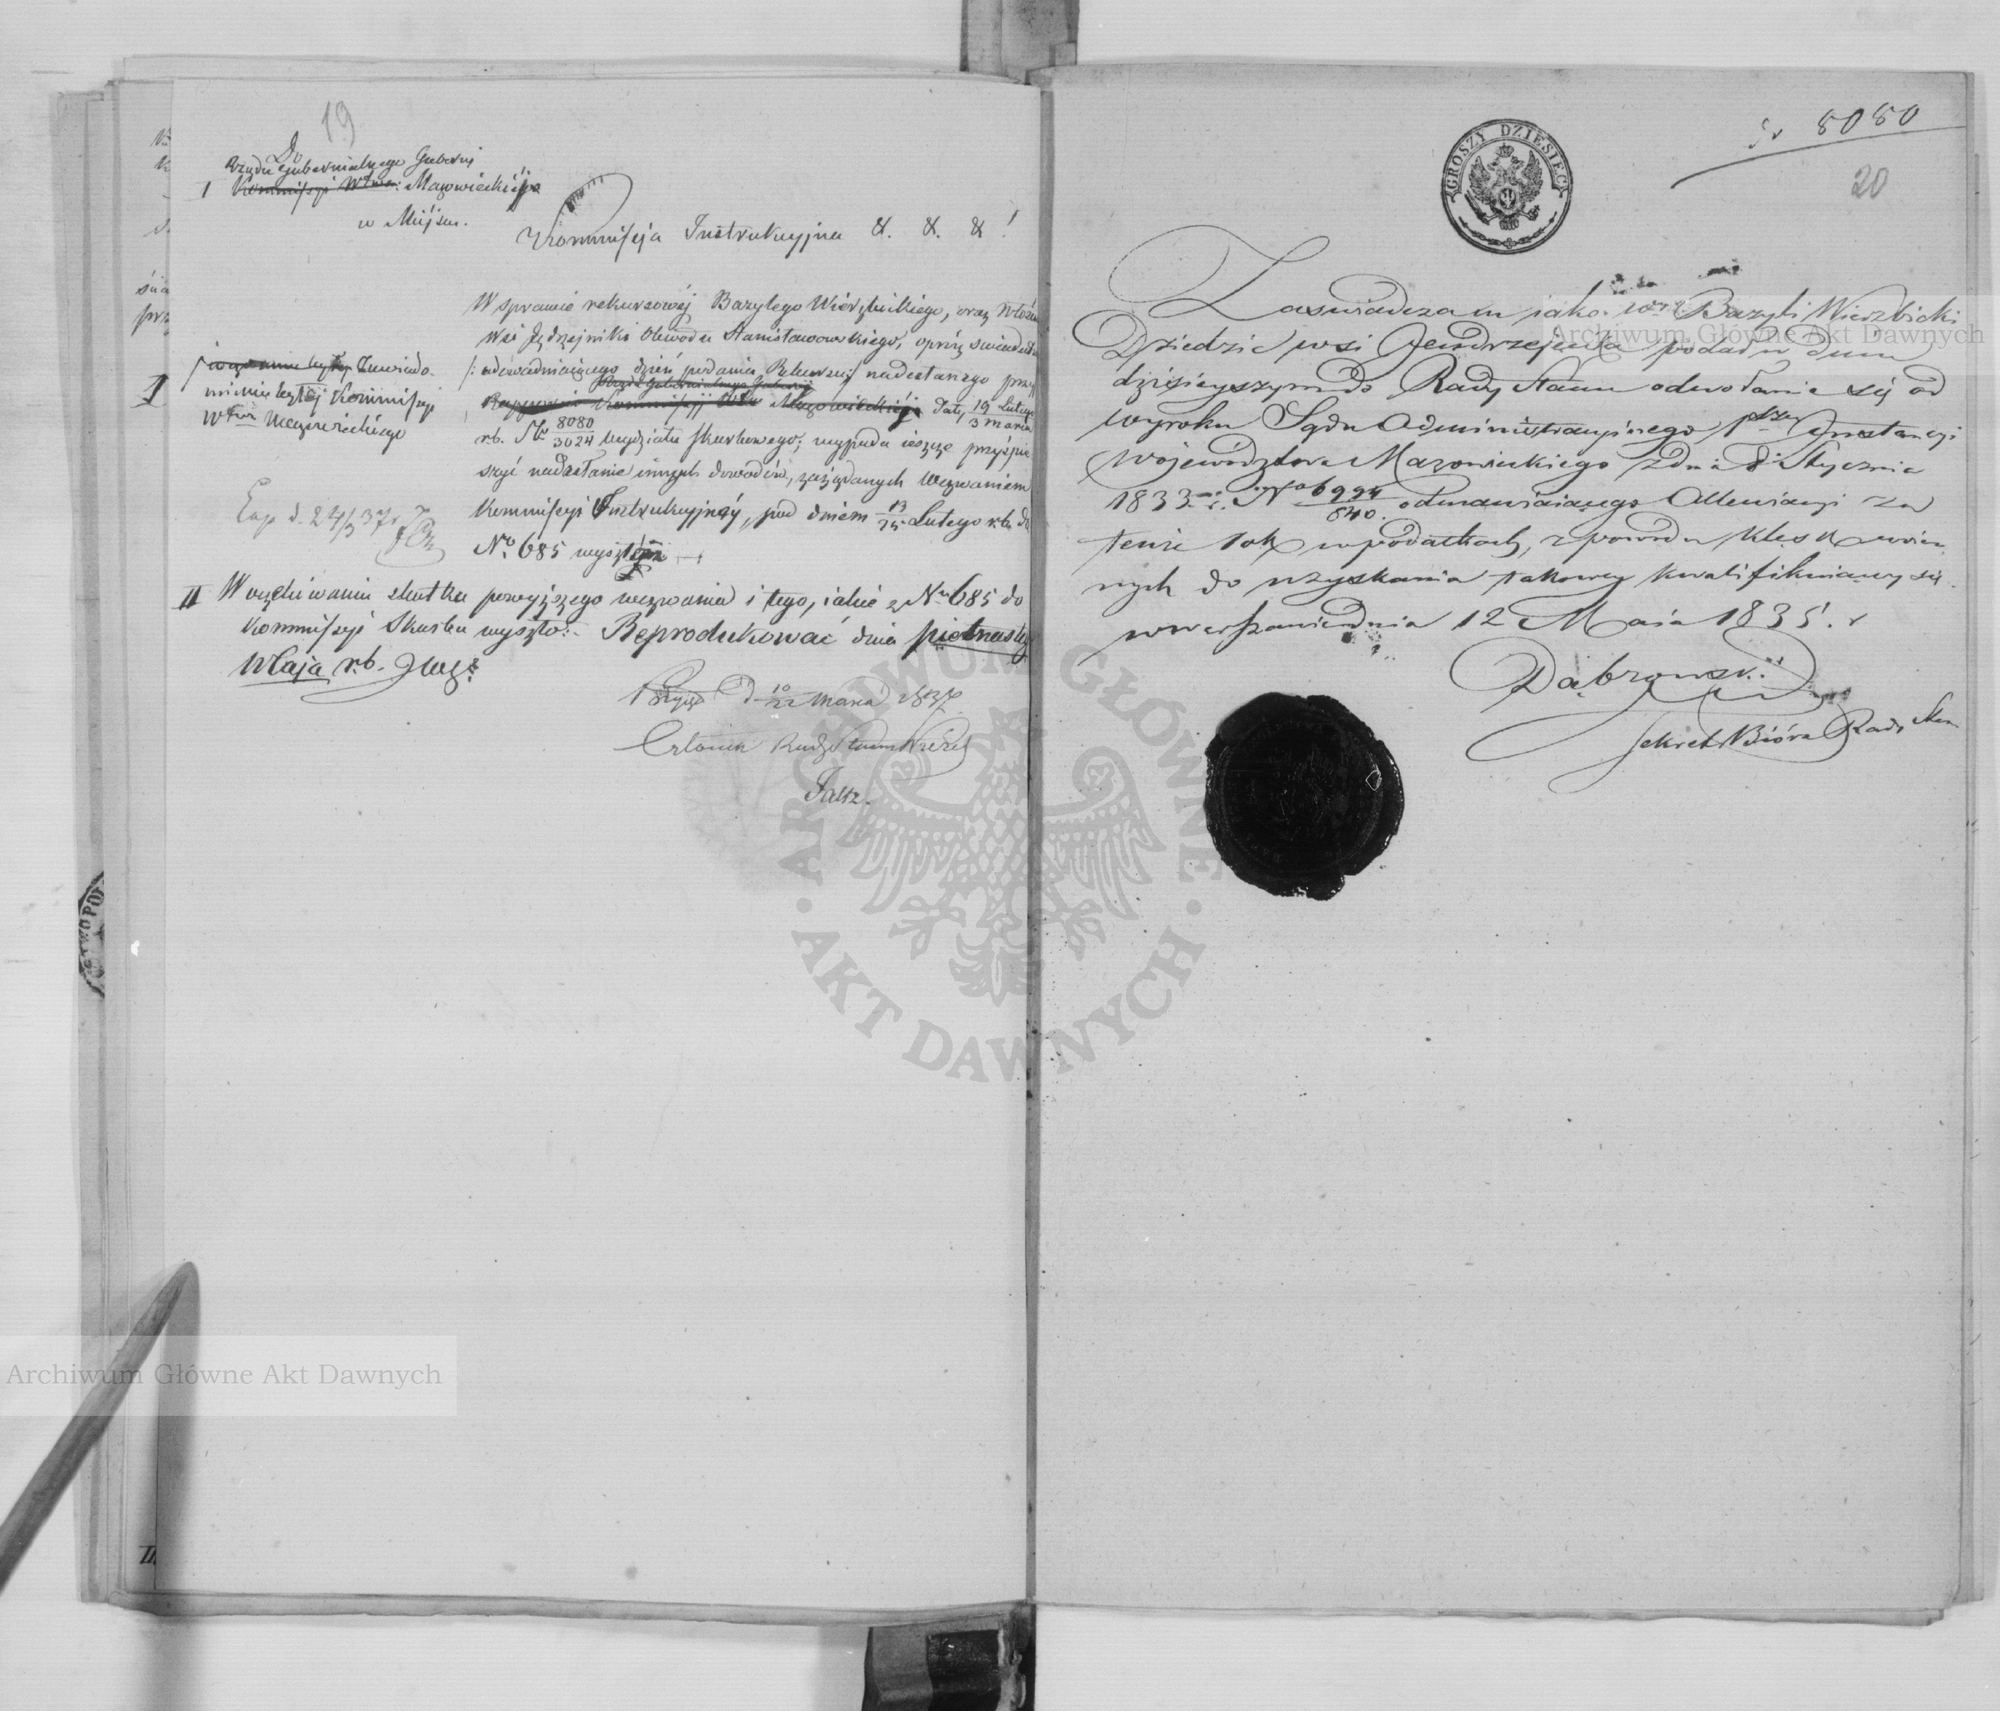 19
Do
Rządu Gubernialnego Gubernij
1 Kommissyi Wtwa: Mazowieckiéj
w Miéjscu.
Kommissja Instrukcyjna &. &. &!
W sprawie rekursowéj Bazylego Wiérzbickiego, oraz Włościan
Wsi Jędrzejnik Obwodu Stanisławowskiego, oprócz świadectwa
/: udowadniającego dzień podania Rekursu :/ nadesłanego przy
Rządu Gubernialnego Gubernij
Kommissyj Wtwa Mazowieckiéj daty 19 Lutego / 3 marca
rb. No 8080/3024 wydziału skarbowego; wypada ieszcze przyśpie
szyć nadesłanie innych dowodów, zażądanych wezwaniem
Kommissyi Instrukcyjnéj, pod dniem 13/25 Lutego rb. do
No. 685
I
Zawiado-
Kommissyi
Wtwa Mazowieckiego
Exp d. 24/3 37r
II W oczekiwaniu skutku powyższego wezwania i tego, iakie z No 685 do
Kommissyi Skarbu wyszło: Reprodukować dnia piętnastego
Maja r.b.
d. 10/22 marca 1837.
Członek Rady Stanu
Faltz.
GROSZY DZIESIĘĆ
8080
20
Zaświadczam jako: Wny Bazyli Wierzbicki
Dziedzic wsi Jendrzejnika podał w dniu
dzisieyszym do Rady Stanu odwołanie się od
wyroku Sądu Administracyinego 1szey Instancyi
Województwa Mazowieckiego z dnia 8 Stycznia
1833 r. No 6994/840. odmawiaiącego Allewiacyi za
tenże rok w podatkach, z powodu klęsk
nych do uzyskania takowey kwalifikuiącey się.
w Warszawie dnia 12 Maia 1835. r
Dąbrowski
Sekret. Bióra Rady Stanu
Archiwum Główne Akt Dawnych
Archiwum Główne Akt Dawnych
ARCHIWUM GŁÓWNE
AKT DAWNYCH